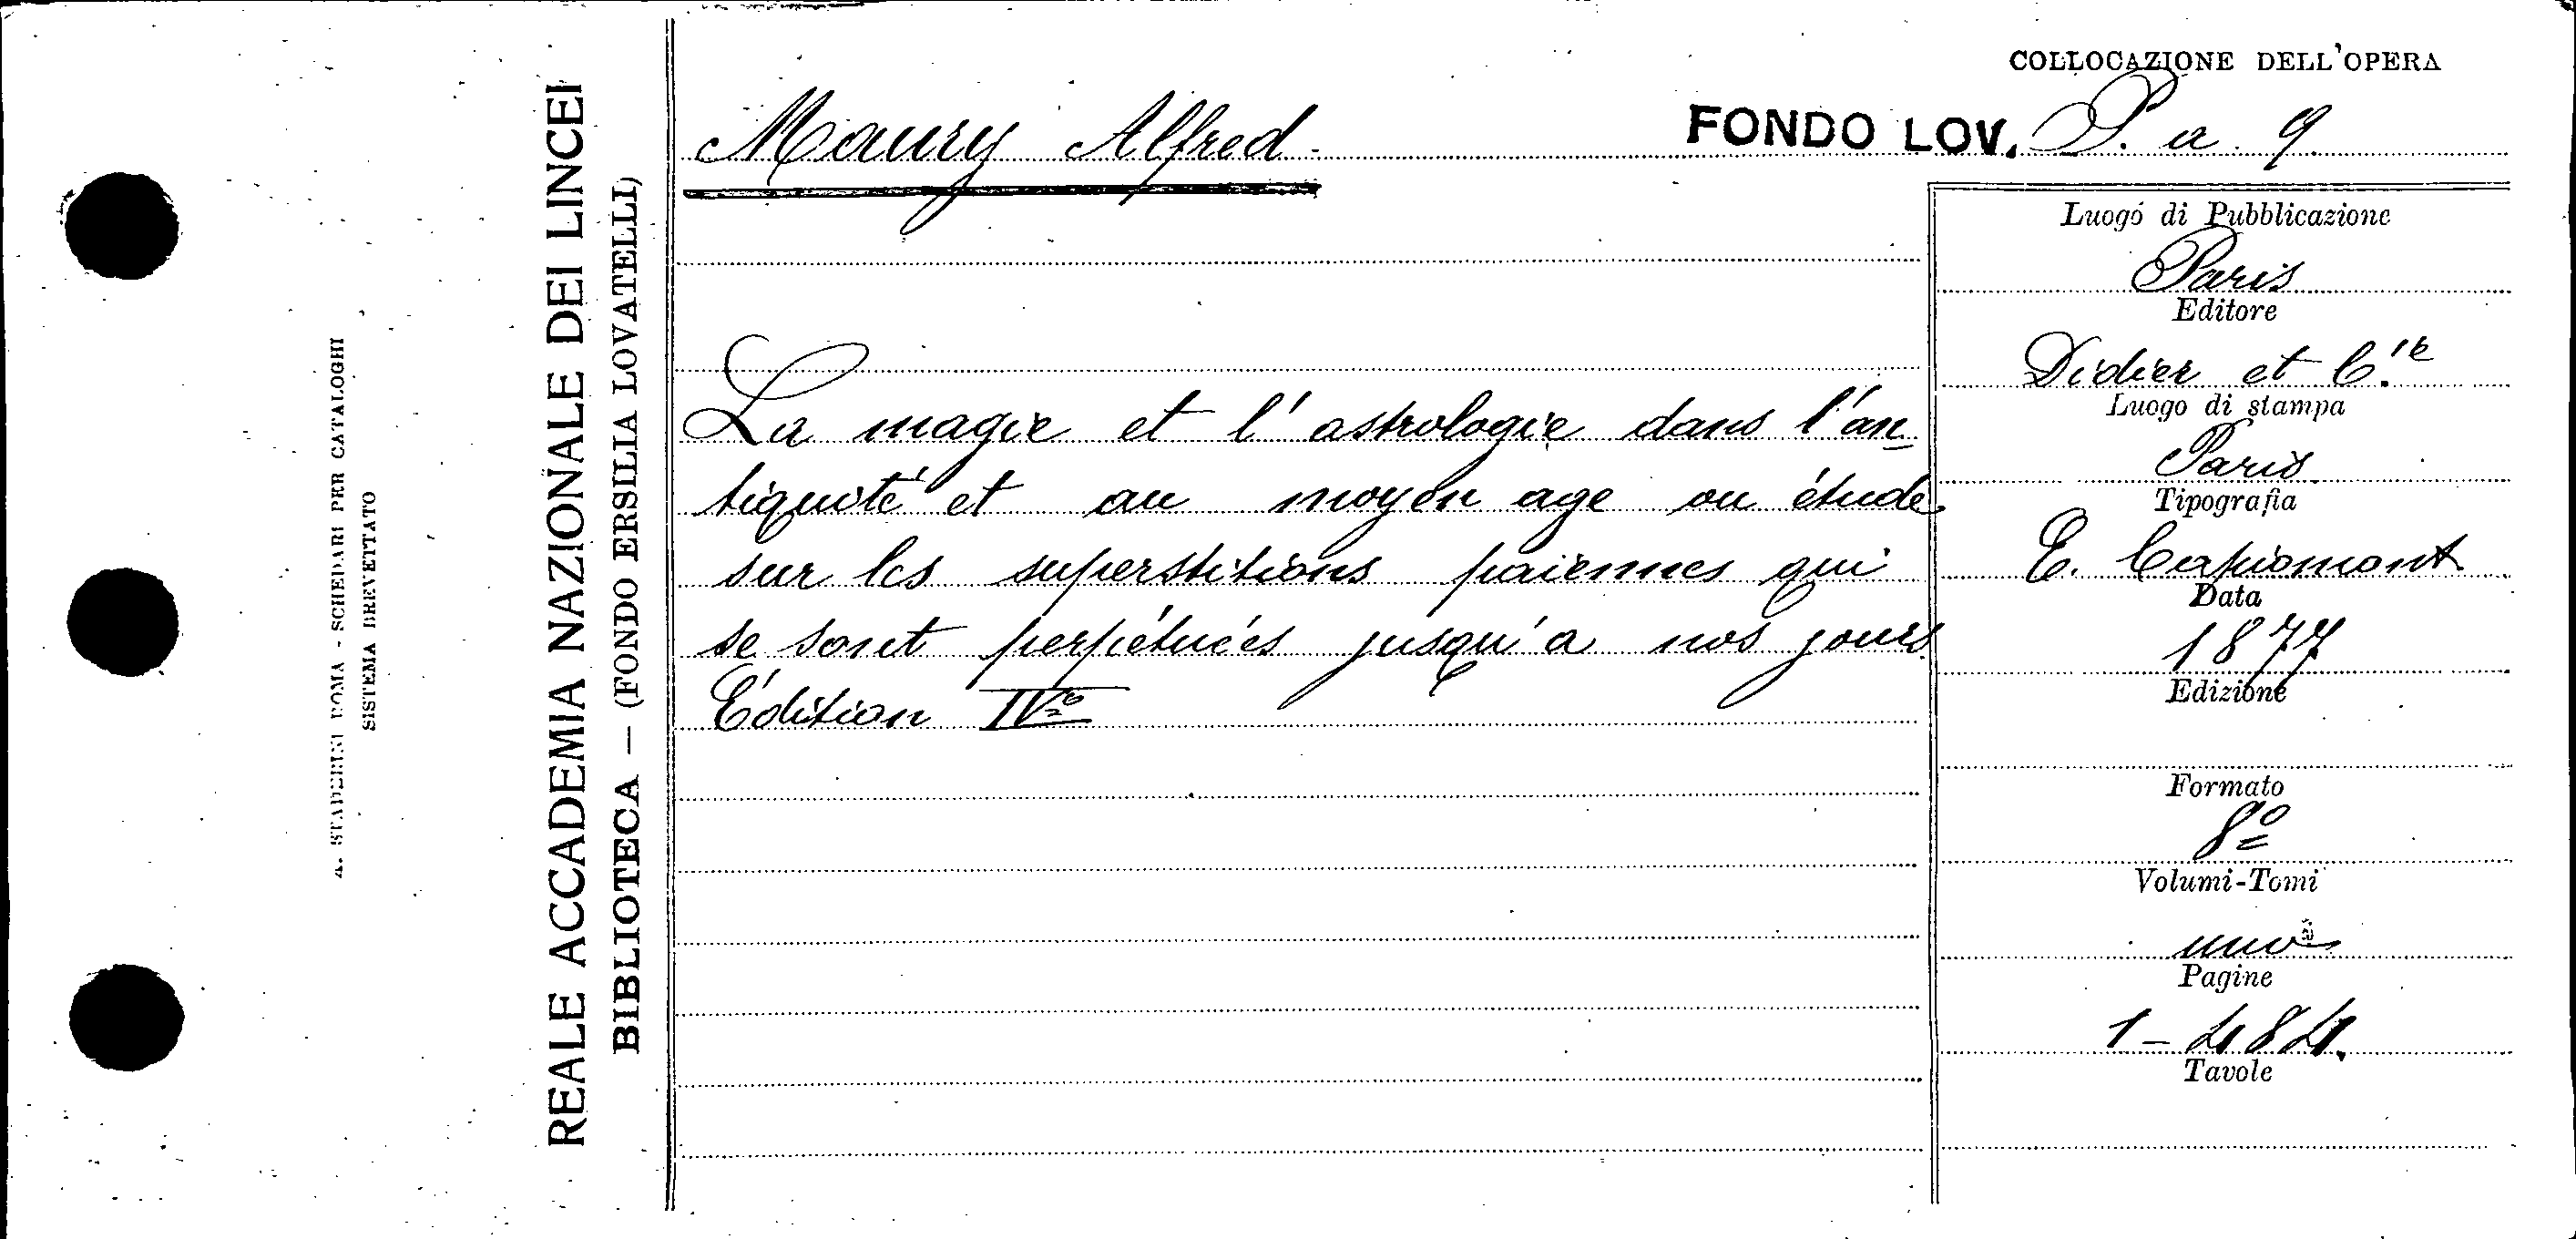 COLLOCAZIONE DELL'OPERA
Maury Alfred
FONDO LOV. P. a. 9.
La magie et l'astrologie dans l'an-
tiquité et au moyen age ou étude
sur les superstitions paiennes qui
se sont perpétuées jusqu'a nos jours
Édition IVº
Luogo di Pubblicazione
Paris
Editore
Didier et C.ie
Luogo di stampa
Paris
Tipografia
E. Capiomont
Data
1877
Edizione
Formato
8º
Volumi-Tomi
uno
Pagine
1-484.
Tavole
REALE ACCADEMIA NAZIONALE DEI LINCEI
BIBLIOTECA — (FONDO ERSILIA LOVATELLI)
A. STADERINI ROMA - SCHEDARI PER CATALOGHI
SISTEMA BREVETTATO